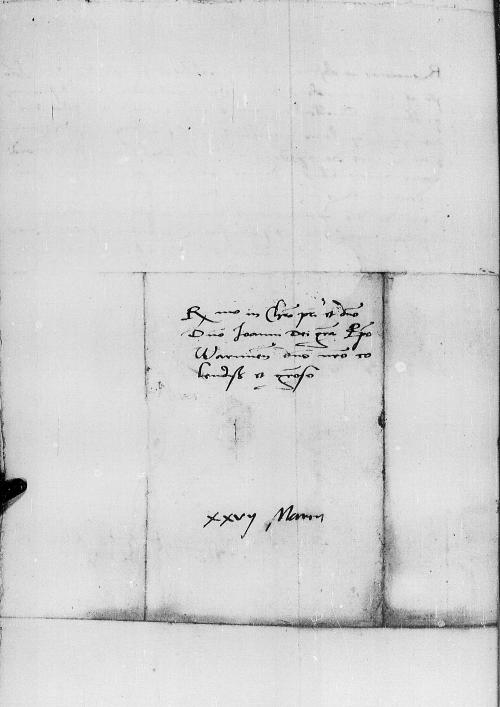 Rmo in Chro pri et dno
Dno Joanni Dei gra Epo
Warmien dno nro co
lendiss et groso
xxvij Marcij